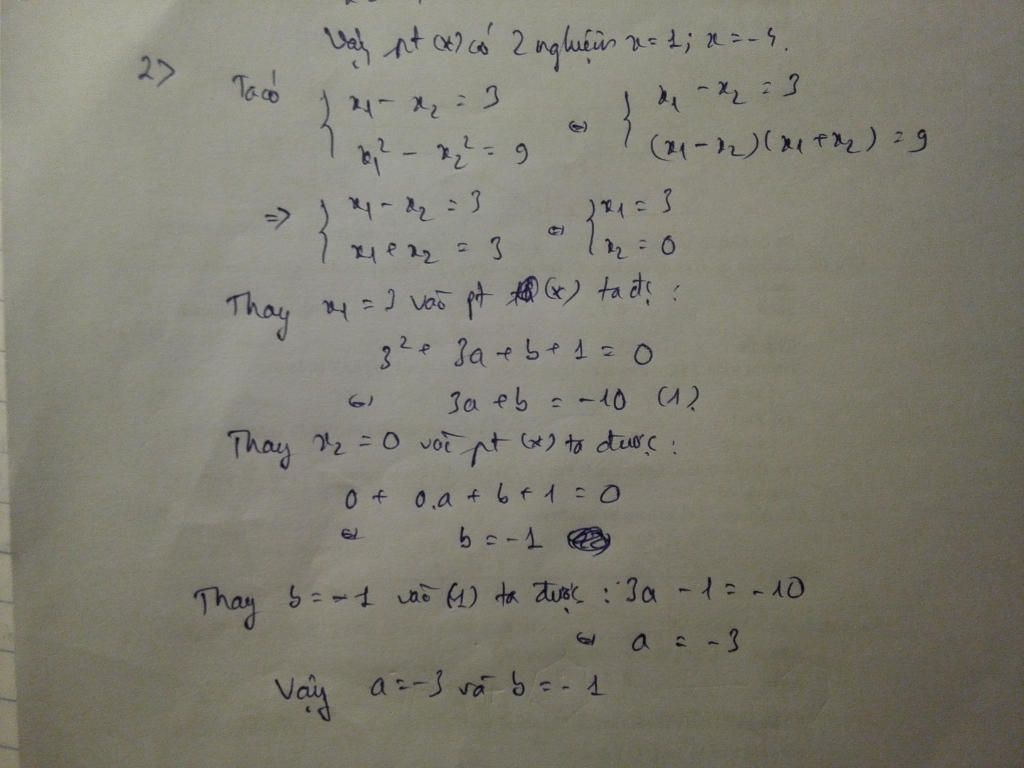 Vậy pt (x) có 2 nghiệm x=1; x=-4.
2> Ta có { x₁ - x₂ = 3 ⇔ { x₁ - x₂ = 3
x₁² - x₂² = 9 (x₁-x₂)(x₁+x₂) = 9
=> { x₁ - x₂ = 3 ⇔ { x₁ = 3
x₁ + x₂ = 3 x₂ = 0
Thay x₁ = 3 vào pt (x) ta đc :
3² + 3a + b + 1 = 0
⇔ 3a + b = -10 (1)
Thay x₂ = 0 vào pt (x) ta được :
0 + 0.a + b + 1 = 0
⇔ b = -1
Thay b = -1 vào (1) ta được : 3a - 1 = -10
⇔ a = -3
Vậy a = -3 và b = -1